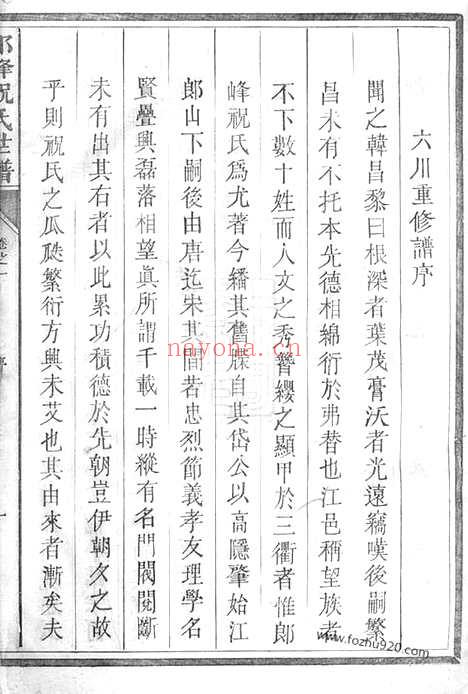 六川重修譜序
聞之韓昌黎曰根深者葉茂膏沃者光遠竊嘆後嗣繁
昌未有不托本先德相綿衍於弗替也江邑稱望族者
不下數十姓而人文之秀簪纓之顯甲於三衢者惟郎
峰祝氏爲尤著今繙其舊牒自其岱公以高隱肇始江
郎山下嗣後由唐迄宋其間若忠烈節義孝友理學名
賢疊興磊落相望眞所謂千載一時縱有名門閥閱斷
未有出其右者以此累功積德於先朝豈伊朝夕之故
乎則祝氏之瓜瓞繁衍方興未艾也其由來者漸矣夫
郎峰祝氏世譜
卷之一
序
一
nayona.cn
www.fozhu920.com